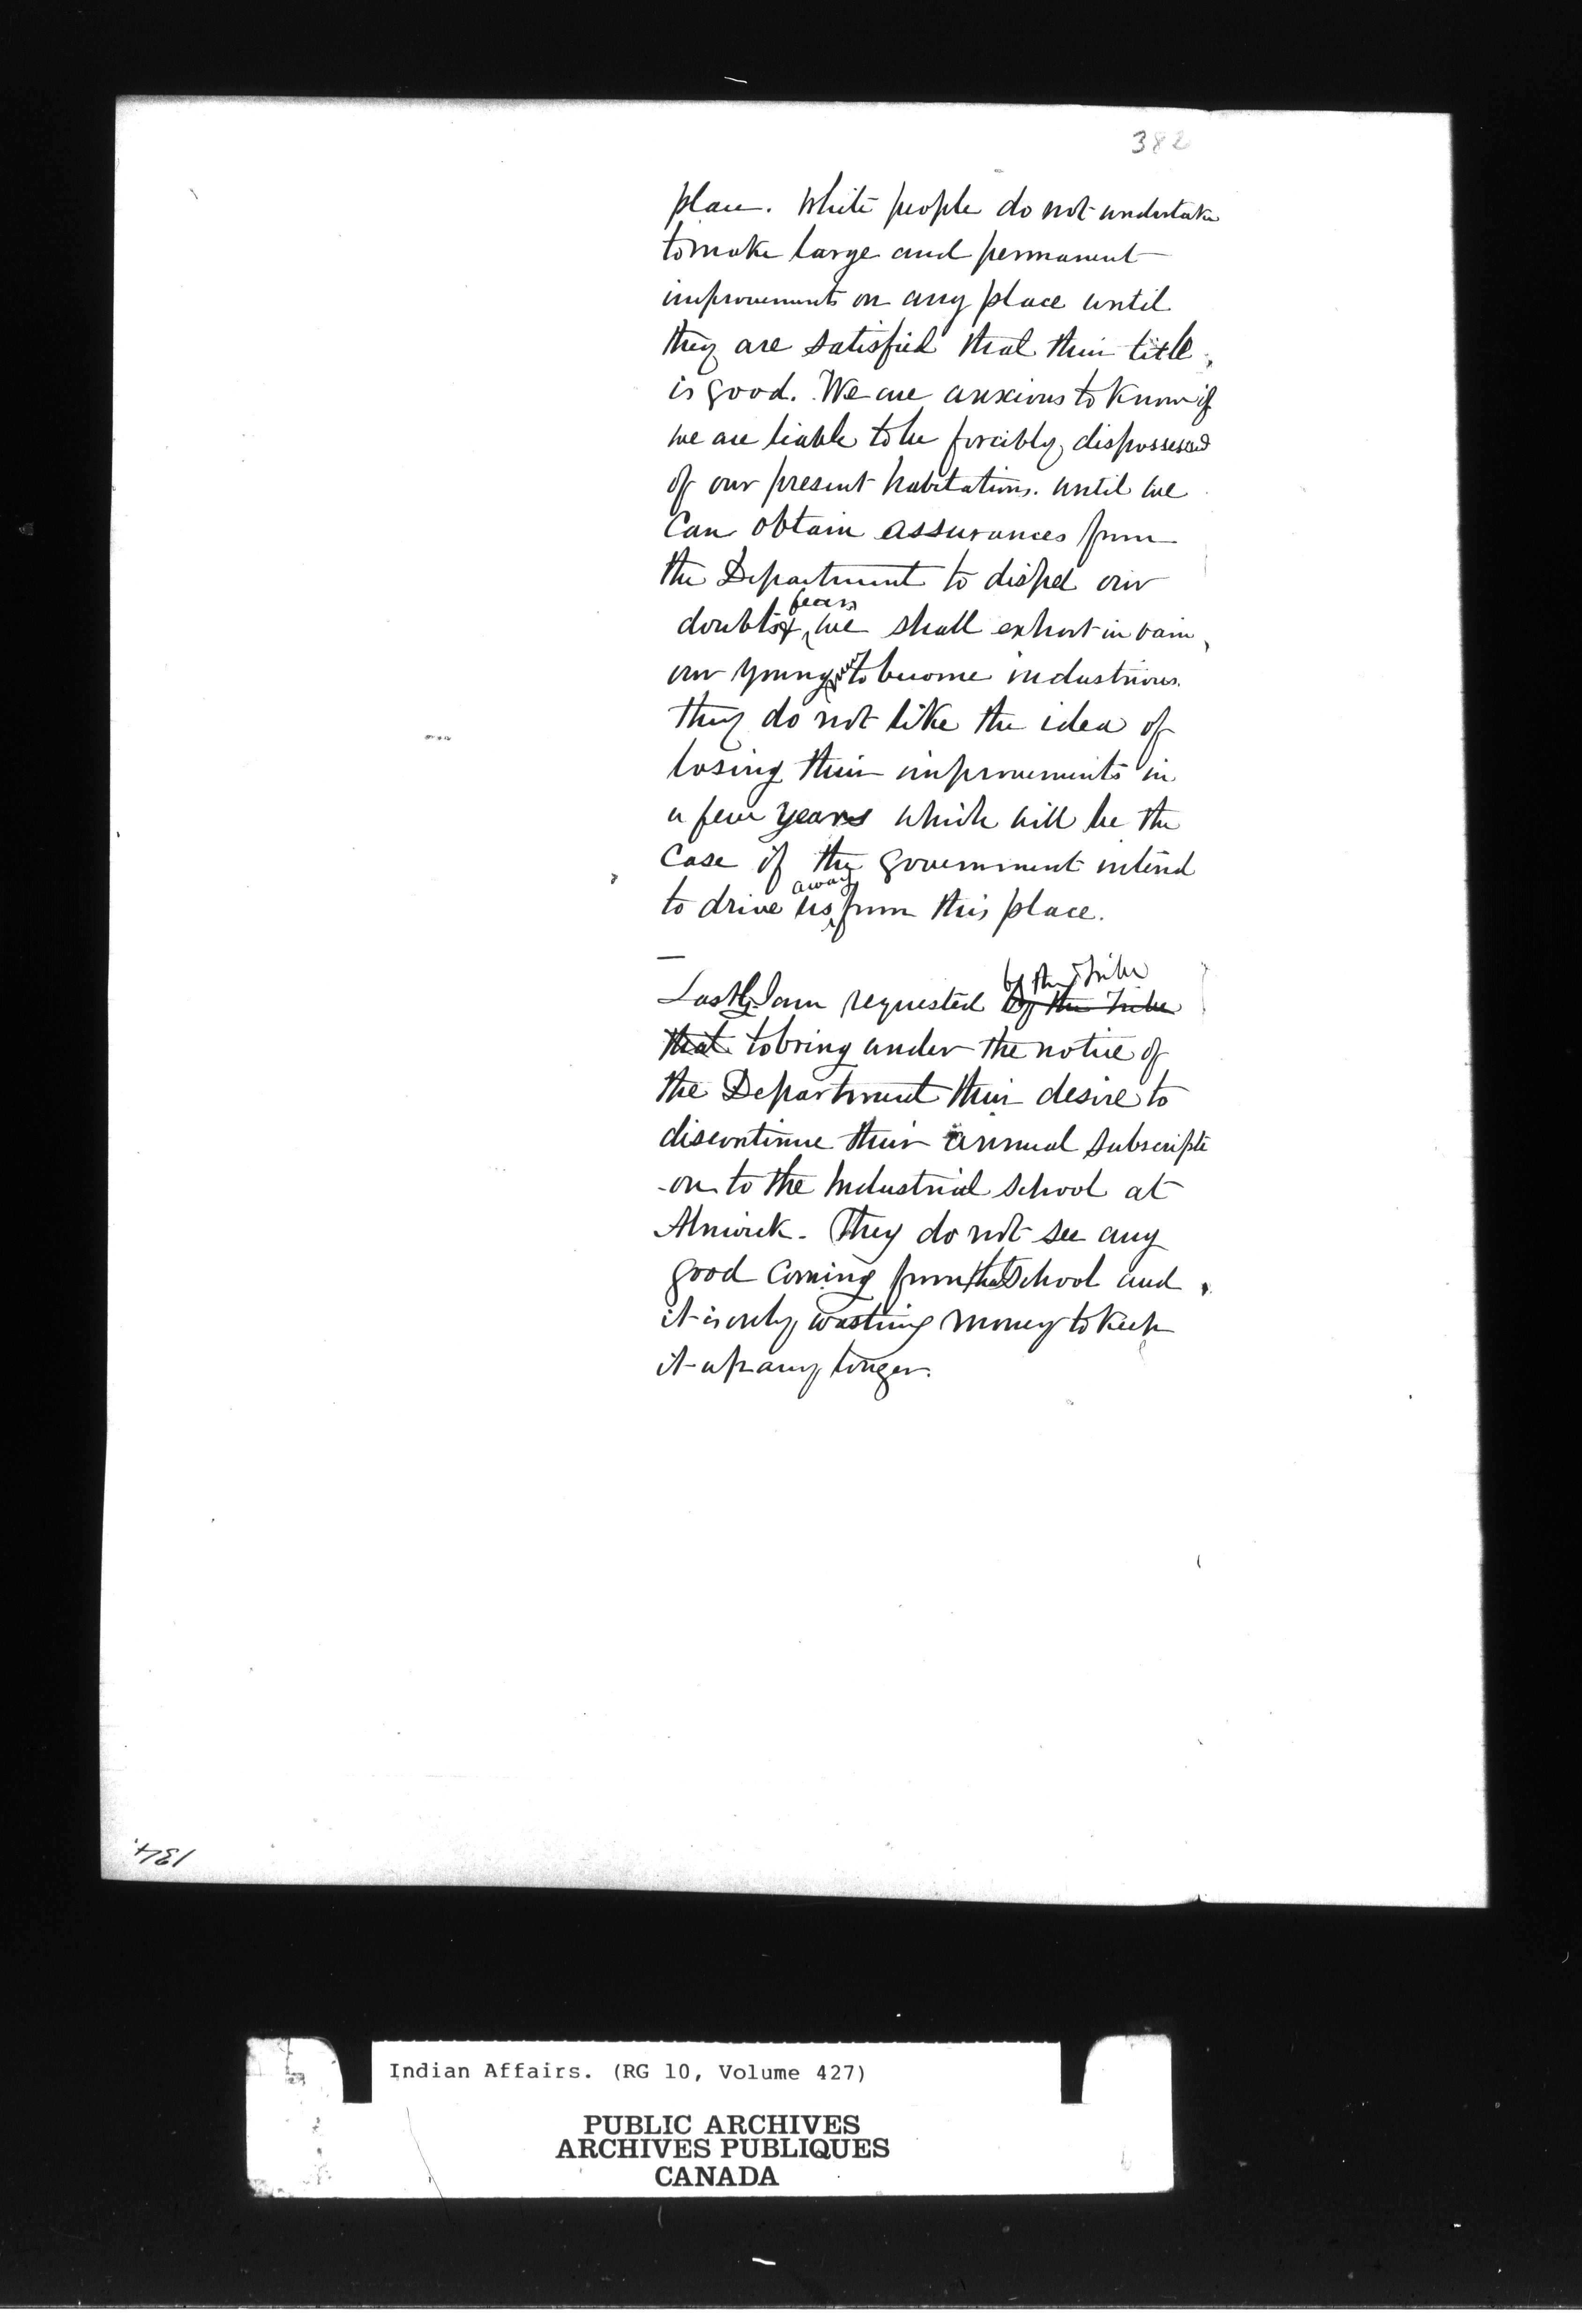 382
place. White people do not undertake
to make large and permanent
improvements on any place until
they are satisfied that their title
is good. We are anxious to know if
we are liable to be forcibly dispossessed
of our present habitations. until we
Can obtain assurances from
the Department to dispel our
doubts & fears we shall exhort in vain
our young men to become industrious.
they do not like the idea of
losing their improvements in
a few years which will be the
Case if the government intend
to drive us away from this place.
—
Lastly I am requested by the Tribe by the Tribe
that to bring under the notice of
the Department their desire to
discontinue their annual subscripti
-on to the Industrial School at
Alnwick. They do not see any
good Coming from that School and
it is only wasting money to keep
it up any longer.
134.
Indian Affairs. (RG 10, Volume 427)
PUBLIC ARCHIVES
ARCHIVES PUBLIQUES
CANADA